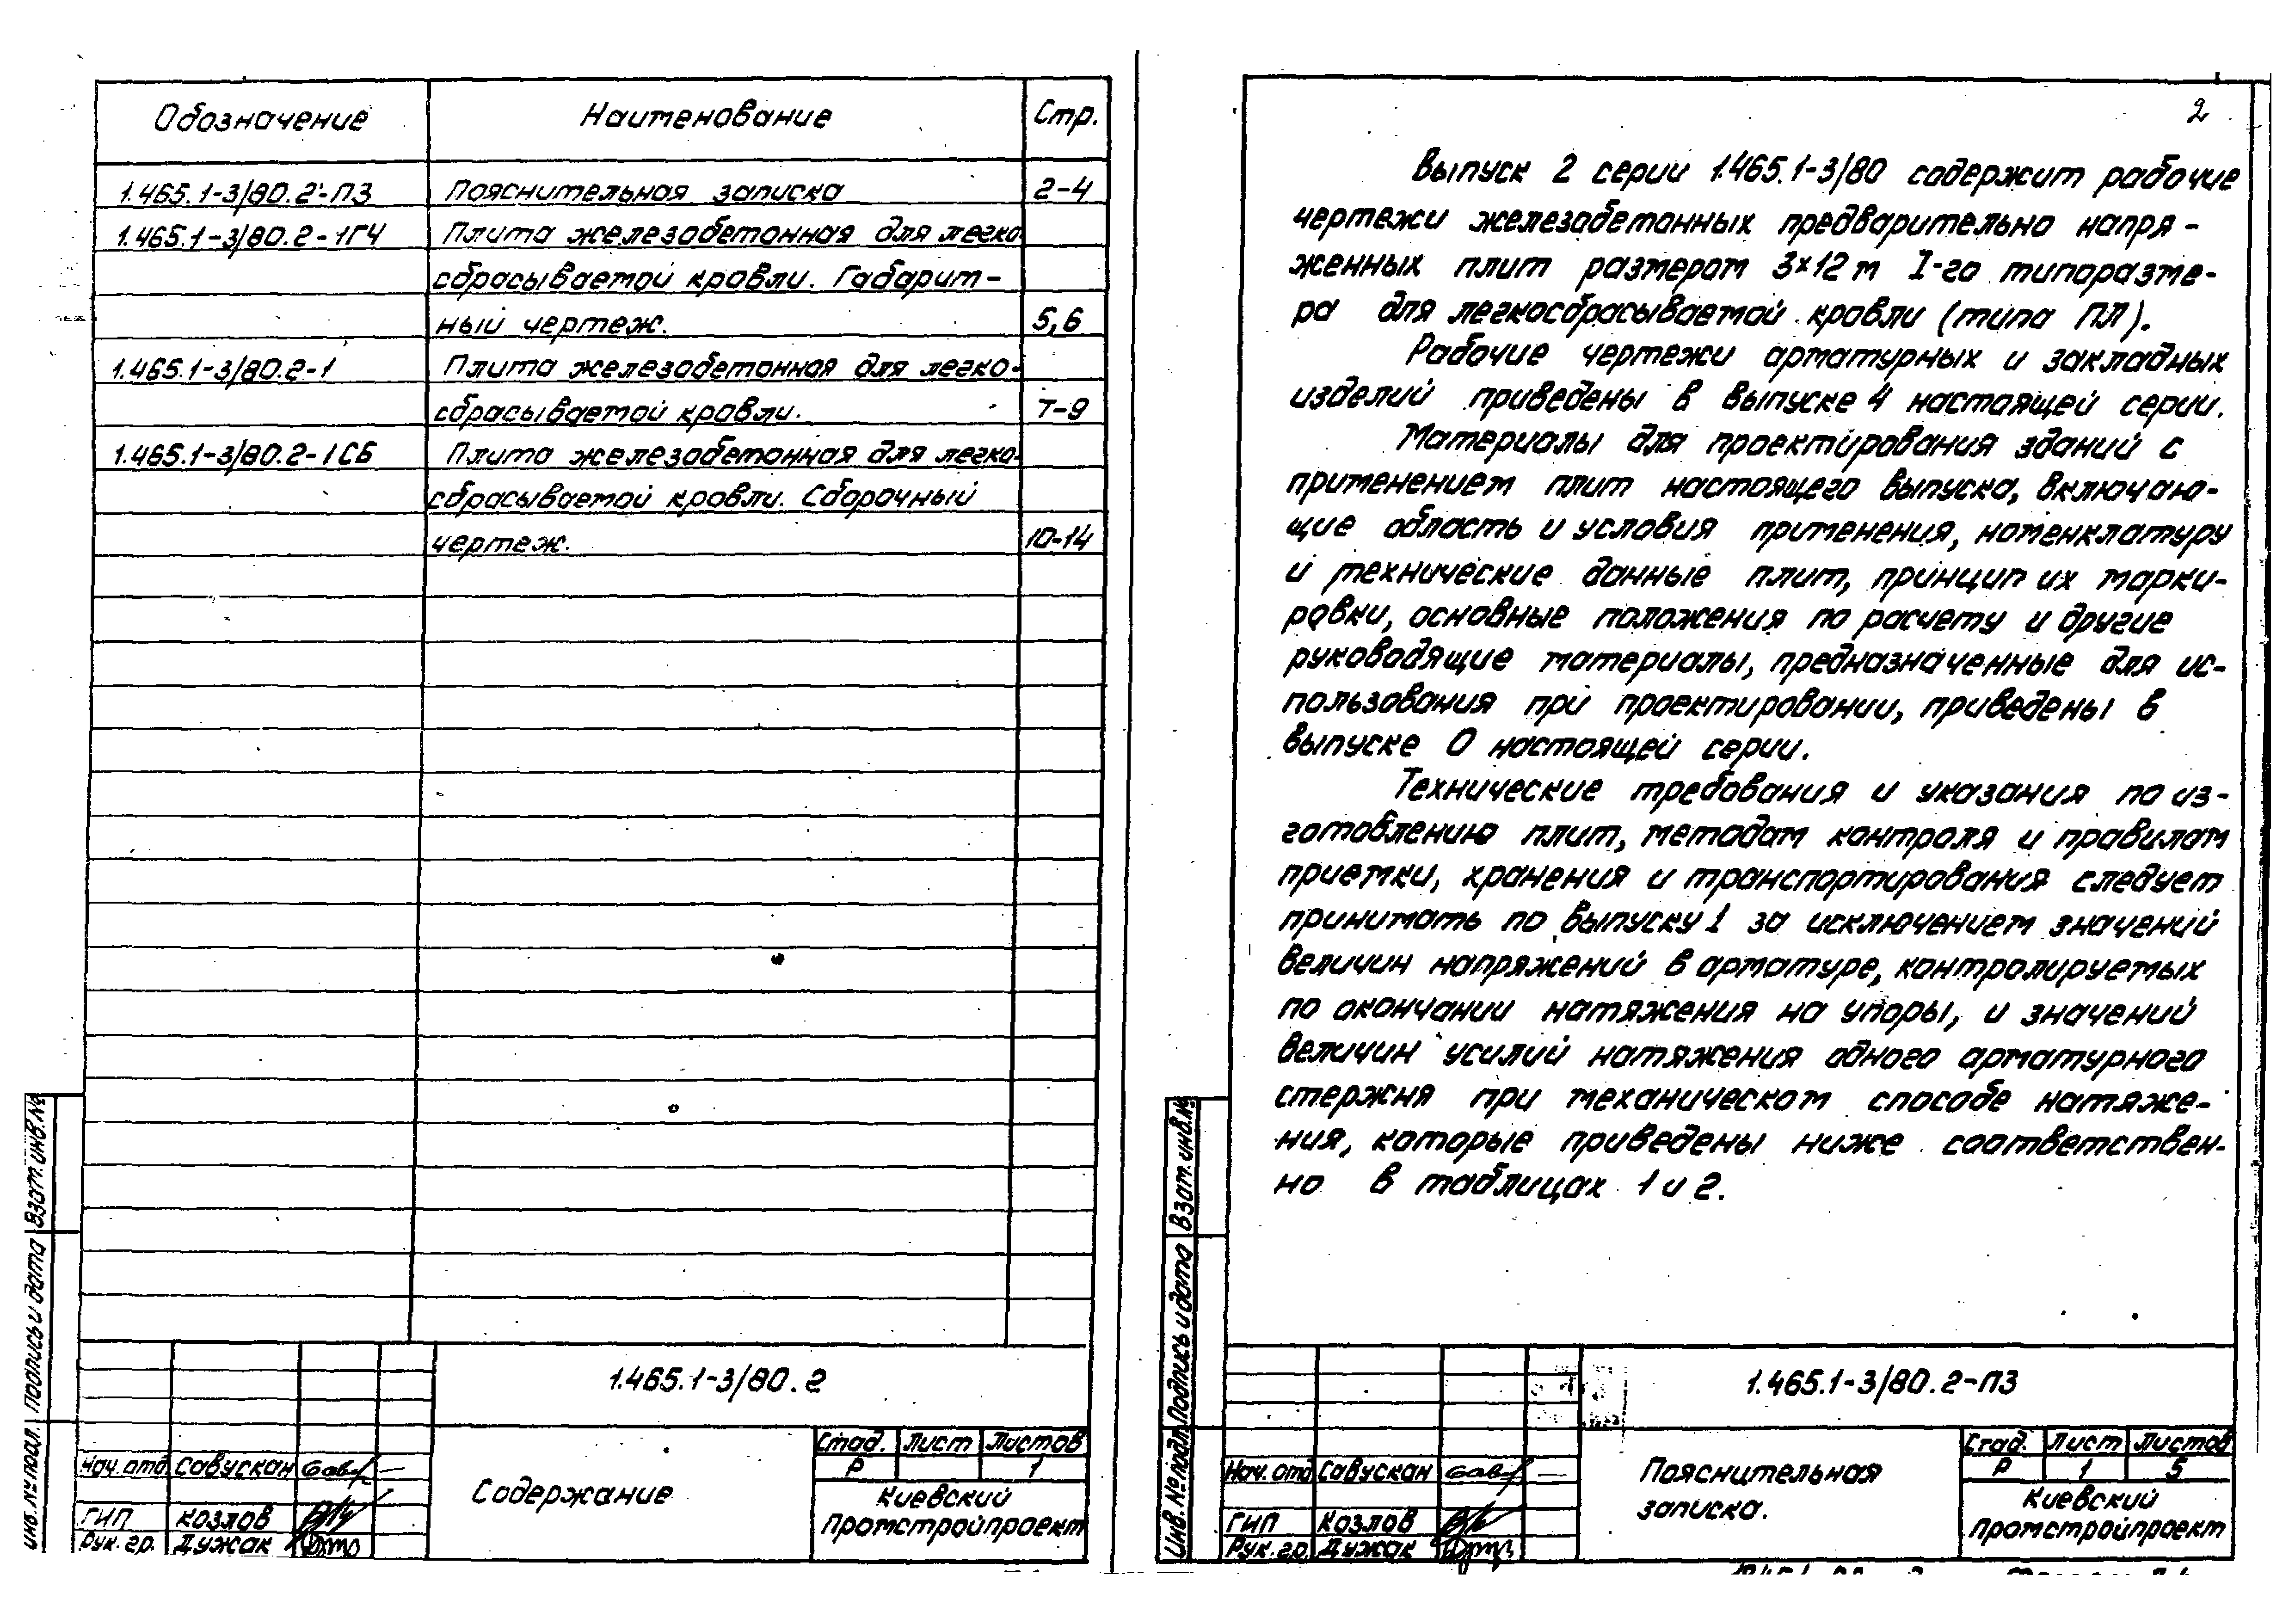 Обозначение Наименование Стр.
1.465.1-3/80.2-ПЗ Пояснительная записка 2-4
1.465.1-3/80.2-1ГЧ Плита железобетонная для легко
сбрасываемой кровли. Габарит-
ный чертеж. 5,6
1.465.1-3/80.2-1 Плита железобетонная для легко-
сбрасываемой кровли. 7-9
1.465.1-3/80.2-1СБ Плита железобетонная для легко-
сбрасываемой кровли. Сборочный
чертеж. 10-14
Инв. № подл. Подпись и дата Взам. инв. №
1.465.1-3/80.2
Содержание
Стад. Лист Листов
Р 1
Киевский
Промстройпроект
Нач. отд Савускан
ГИП Козлов
Рук. гр. Дужак
2
Выпуск 2 серии 1.465.1-3/80 содержит рабочие
чертежи железобетонных предварительно напря-
женных плит размером 3×12 м I-го типоразме-
ра для легкосбрасываемой кровли (типа ПЛ).
Рабочие чертежи арматурных и закладных
изделий приведены в выпуске 4 настоящей серии.
Материалы для проектирования зданий с
применением плит настоящего выпуска, включаю-
щие область и условия применения, номенклатуру
и технические данные плит, принцип их марки-
ровки, основные положения по расчету и другие
руководящие материалы, предназначенные для ис-
пользования при проектировании, приведены в
выпуске 0 настоящей серии.
Технические требования и указания по из-
готовлению плит, методам контроля и правилам
приемки, хранения и транспортирования следует
принимать по выпуску 1 за исключением значений
величин напряжений в арматуре, контролируемых
по окончании натяжения на упоры, и значений
величин усилий натяжения одного арматурного
стержня при механическом способе натяже-
ния, которые приведены ниже соответствен-
но в таблицах 1 и 2.
Инв. № подл. Подпись и дата Взам. инв. №
1.465.1-3/80.2-ПЗ
Пояснительная
записка.
Стад. Лист Листов
Р 1 5
Киевский
Промстройпроект
Нач. отд Савускан
ГИП Козлов
Рук. гр. Дужак